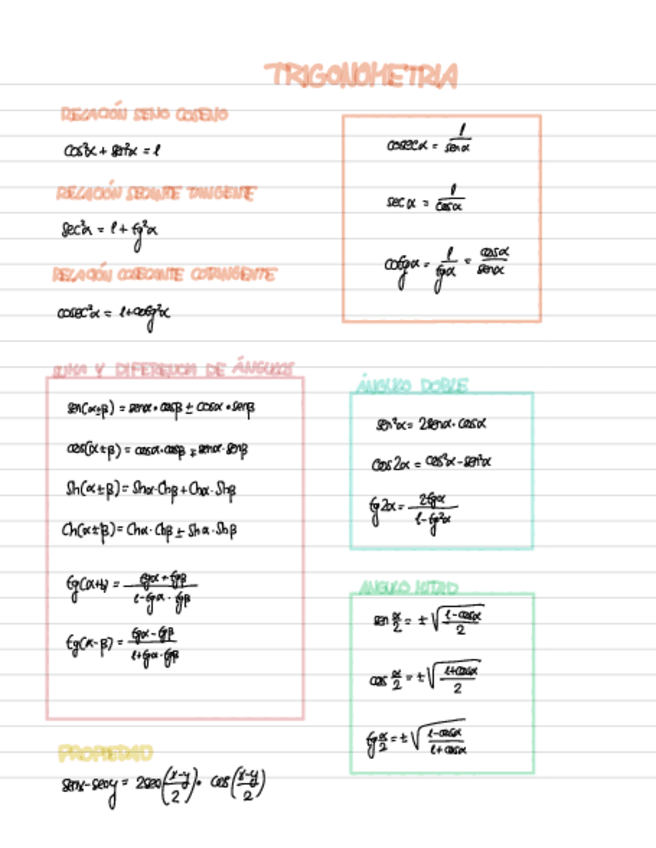 TRIGONOMETRIA
RELACIÓN SENO COSENO
cos²α + sen²α = 1
RELACIÓN SECANTE TANGENTE
sec²α = 1 + tg²α
RELACIÓN COSECANTE COTANGENTE
cosec²α = 1+cotg²α
cosec α = 1/sen α
sec α = 1/cos α
cotg α = 1/tg α = cos α/sen α
SUMA Y DIFERENCIA DE ÁNGULOS
sen(α±β) = senα · cosβ ± cosα · senβ
cos(α±β) = cosα · cosβ ∓ senα · senβ
Sh(α±β) = Shα · Chβ + Chα · Shβ
Ch(α±β) = Chα · Chβ ± Shα · Shβ
tg(α+β) = (tgα + tgβ)/(1 - tgα · tgβ)
tg(α-β) = (tgα - tgβ)/(1 + tgα · tgβ)
ÁNGULO DOBLE
sen²α = 2senα · cosα
cos2α = cos²α - sen²α
tg2α = 2tgα/(1 - tg²α)
ÁNGULO MITAD
sen α/2 = ±√((1 - cosα)/2)
cos α/2 = ±√((1 + cosα)/2)
tg α/2 = ±√((1 - cosα)/(1 + cosα))
PROPIEDAD
senx - seny = 2sen((x-y)/2) · cos((x-y)/2)